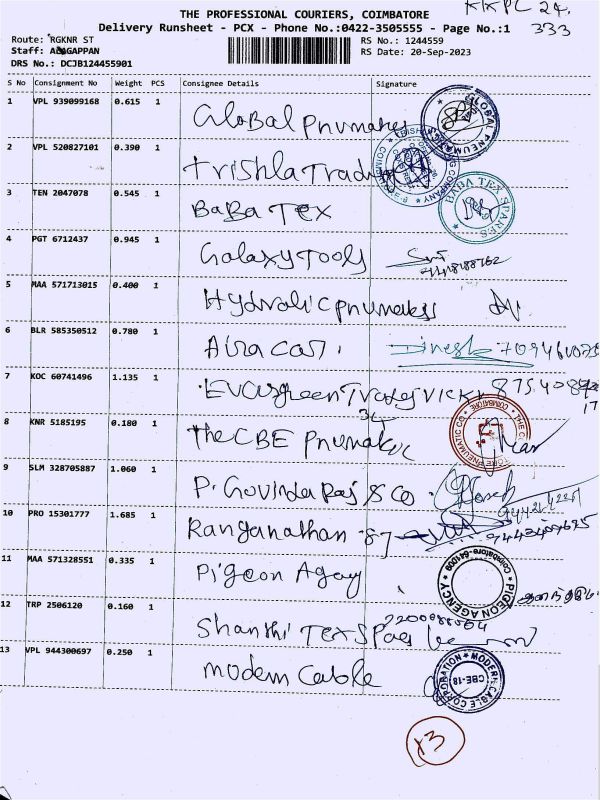 THE PROFESSIONAL COURIERS, COIMBATORE
KKPL 24.
333
Delivery Runsheet - PCX - Phone No.:0422-3505555 - Page No.:1
Route: RGKNR ST
RS No.: 1244559
Staff: ALAGAPPAN
RS Date: 20-Sep-2023
DRS No.: DCJB124455901
S No Consignment No Weight PCS Consignee Details Signature
1 VPL 939099168 0.615 1 Global pnumakes
GLOBAL PNEUMATIC
2 VPL 520827101 0.390 1 trishla Trading
3 TEN 2047078 0.545 1 BaBa TEX
BABA TEX SPARES
4 PGT 6712437 0.945 1 Galaxy Tools
5 MAA 571713015 0.400 1 Hydralic pnumakes
6 BLR 585350512 0.780 1 Dinesh
7 KOC 60741496 1.135 1 Evargreen
8 KNR 5185195 0.180 1 the CBE
9 SLM 328705887 1.060 1 P. Govinda Raj & Co
10 PRO 15301777 1.685 1 Ranganathan 87
11 MAA 571328551 0.335 1 Pigeon Agay
PIGEON AGENCY ★ Coimbatore-641009
12 TRP 2506120 0.160 1 Shanthi TEX Spaes
13 VPL 944300697 0.250 1 modern Cable
MODERN CABLE CORPORATION CBE-18
x3